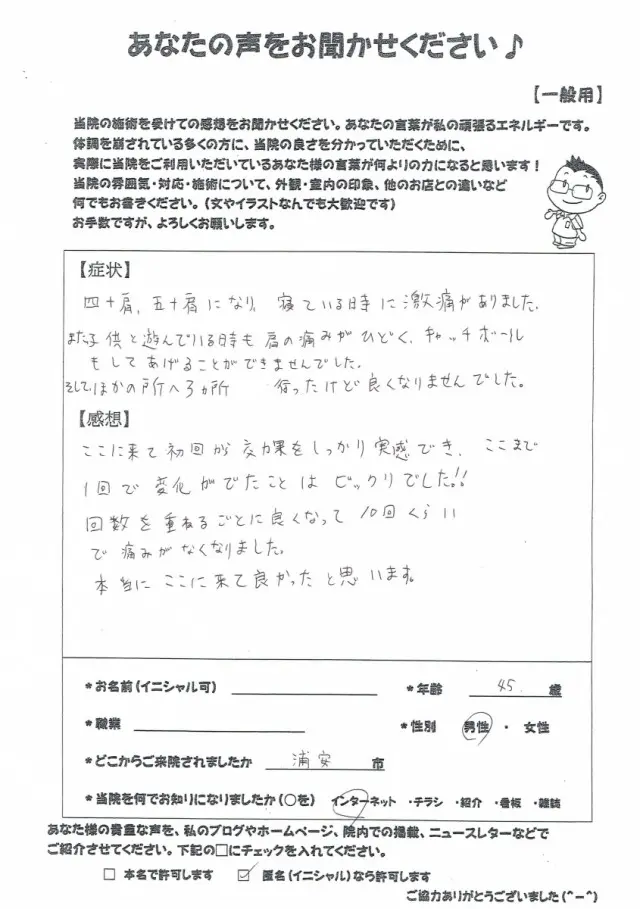 あなたの声をお聞かせください♪
【一般用】
当院の施術を受けての感想をお聞かせください。あなたの言葉が私の頑張るエネルギーです。
体調を崩されている多くの方に、当院の良さを分かっていただくために、
実際に当院をご利用いただいているあなた様の言葉が何よりの力になると思います！
当院の雰囲気・対応・施術について、外観・室内の印象、他のお店との違いなど
何でもお書きください。（文やイラストなんでも大歓迎です）
お手数ですが、よろしくお願いします。
【症状】
四十肩，五十肩になり，寝ている時に激痛がありました。
また子供と遊んでいる時も肩の痛みがひどく、キャッチボール
もしてあげることができませんでした。
そしてほかの所へ3ヵ所 行ったけど良くなりませんでした。
【感想】
ここに来て初回から効果をしっかり実感でき、ここまで
1回で変化がでたことはビックリでした!!
回数を重ねるごとに良くなって10回くらい
で痛みがなくなりました。
本当にここに来て良かったと思います。
*お名前（イニシャル可） *年齢 45 歳
*職業 *性別 男性 ・ 女性
*どこからご来院されましたか 浦安 市
*当院を何でお知りになりましたか（○を） インターネット ・チラシ ・紹介 ・看板 ・雑誌
あなた様の貴重な声を、私のブログやホームページ、院内での掲載、ニュースレターなどで
ご紹介させてください。下記の□にチェックを入れてください。
□ 本名で許可します ☑ 匿名（イニシャル）なら許可します
ご協力ありがとうございました（^－^）